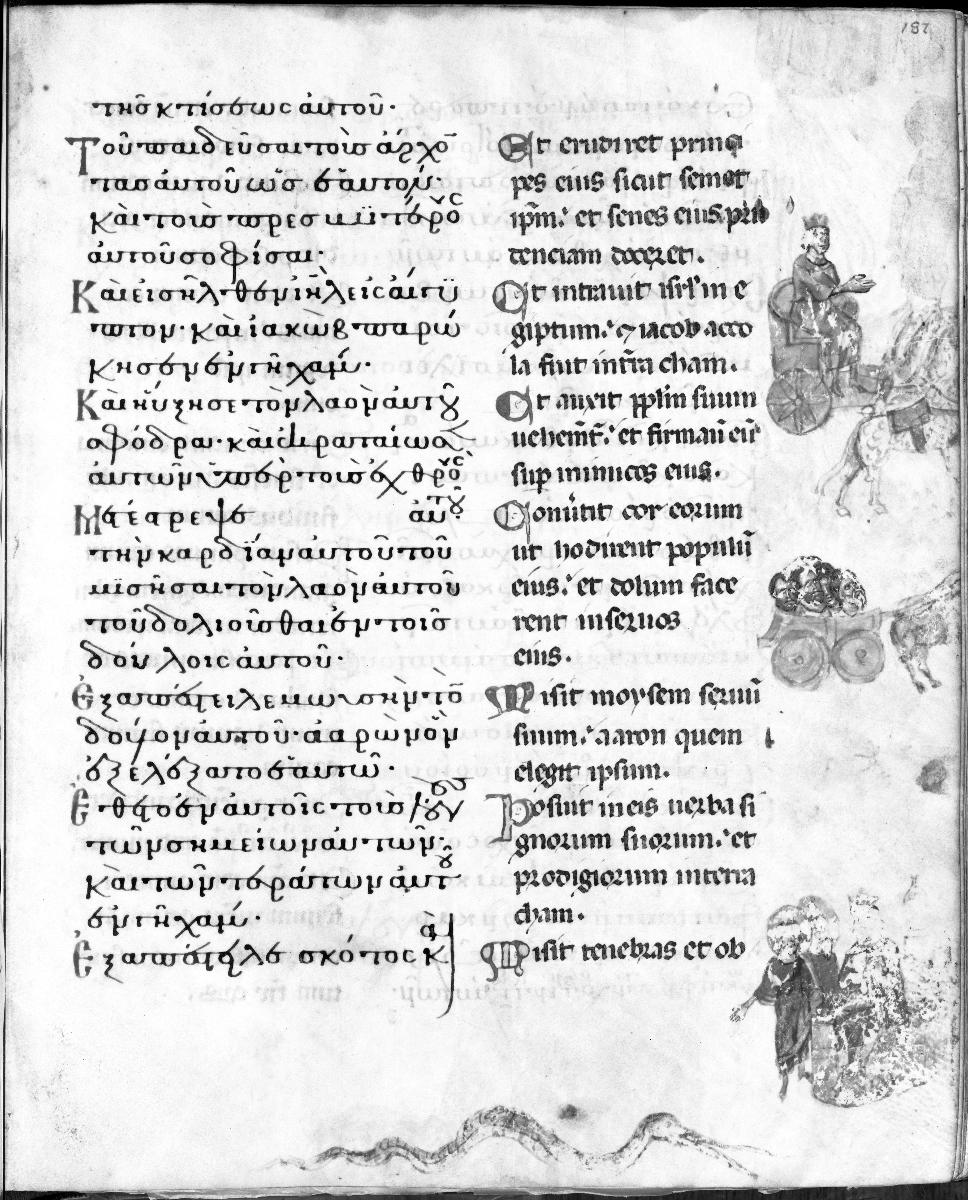 187
τῆς κτίσεως αὐτοῦ·
Τοῦ παιδεῦσαι τοὺσ ἄρχο̅
τασ αὐτοῦ ὡσ ἑαυτόν·
καὶ τοὺσ πρεσβυτέρους
αὐτοῦ σοφίσαι·
Καὶ εἰσῆλθεν ιηλ εἰς αἴγυ
πτον· καὶ ἰακὼβ παρώ
κησεν ἐν γῆ χάμ·
Καὶ ηὔξησε τὸν λαὸν αὐτοῦ
σφόδρα· καὶ ἐκραταίωσεν
αὐτὸν ὑπὲρ τοὺσ ἐχθροὺς
Μετέστρεψε αὐτοῦ
τὴν καρδίαν αὐτοῦ τοῦ
μισῆσαι τὸν λαὸν αὐτοῦ
τοῦ δολιοῦσθαι ἐν τοῖσ
δούλοις αὐτοῦ·
Ἐξαπέστειλε μωυσῆν τὸ̅
δοῦλον αὐτοῦ· ἀαρὼν ὃν
ἐξελέξατο ἑαυτῶ·
Ἔθετο ἐν αὐτοῖς τοὺσ λόγους
τῶν σημείων αὐτῶν·
καὶ τῶν τεράτων αὐτοῦ
ἐν γῆ χάμ·
Ἐξαπέστειλε σκότος κα
Et erudiret princi
pes eius sicut semet
ipm̅: et senes eius pru
denciam doceret.
Et intrauit isrl̅ in e
giptum: & iacob acco
la fuit in tr̅a cham.
Et auxit ppl̅m suum
uehem̅t̅: et firmau̅ eu̅
sup inimicos eius.
Conu̅tit cor eorum
ut hodirent populu̅
eius: et dolum face
rent in seruos
eius.
Misit moysem seruu̅
suum: aaron quem
elegit ipsum.
Posuit in eis uerba si
gnorum suorum: et
prodigiorum in terra
cham.
Misit tenebras et ob